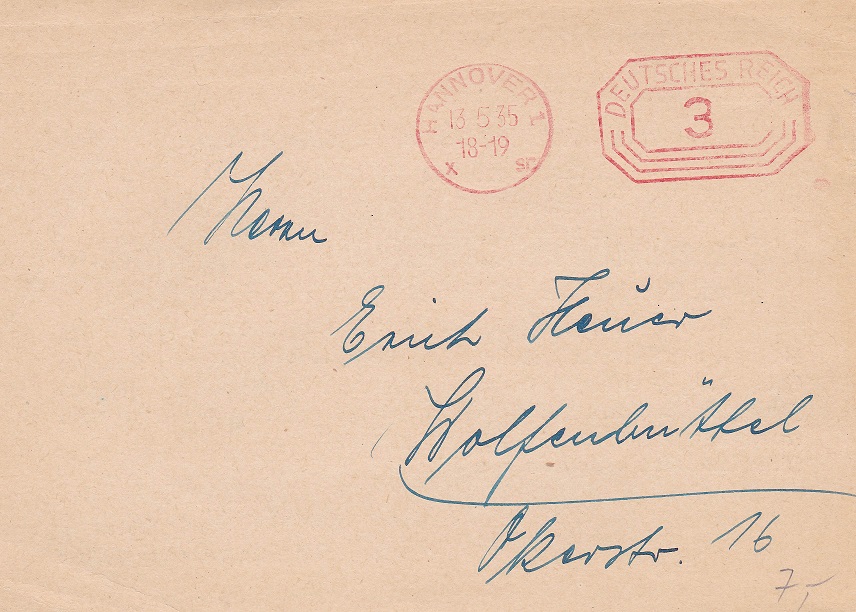 HANNOVER 1
13.5.35
18-19
x sr
DEUTSCHES REICH
3
Herrn
Erich Heuer
Wolfenbüttel
Okerstr. 16
7,-